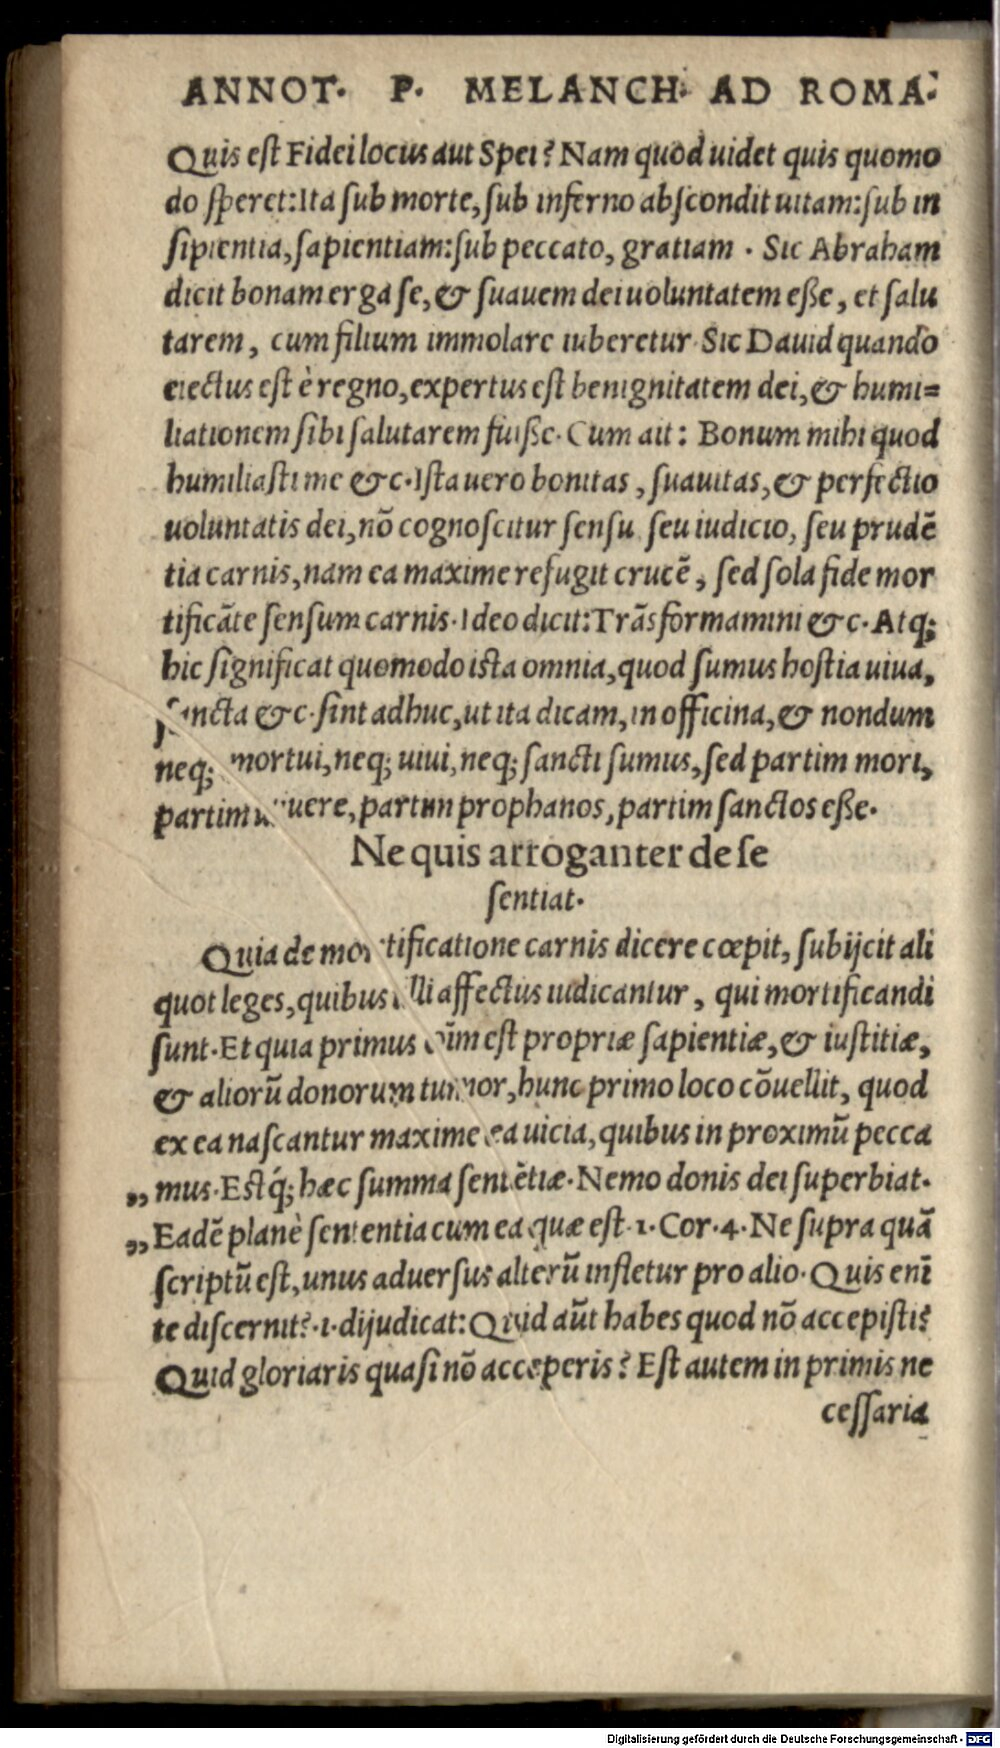 ANNOT. P. MELANCH. AD ROMA.
Quis eſt Fidei locus aut Spei? Nam quod uidet quis quomo
do ſperet: Ita ſub morte, ſub inferno abſcondit uitam: ſub in
ſipientia, ſapientiam: ſub peccato, gratiam. Sic Abraham
dicit bonam erga ſe, & ſuauem dei uoluntatem eße, et ſalu
tarem, cum filium immolare iuberetur. Sic Dauid quando
eiectus eſt è regno, expertus eſt benignitatem dei, & humi=
liationem ſibi ſalutarem fuiße. Cum ait: Bonum mihi quod
humiliaſti me &c. Iſta uero bonitas, ſuauitas, & perfectio
uoluntatis dei, nō cognoſcitur ſenſu ſeu iudicio, ſeu prudē
tia carnis, nam ea maxime refugit crucē, ſed ſola fide mor
tificāte ſenſum carnis. Ideo dicit: Trāsformamini &c. Atq;
hic ſignificat quomodo iſta omnia, quod ſumus hoſtia uiua,
ſancta &c. ſint adhuc, ut ita dicam, in officina, & nondum
neq; mortui, neq; uiui, neq; ſancti ſumus, ſed partim mori,
partim uiuere, partim prophanos, partim ſanctos eße.
Ne quis arroganter de ſe
ſentiat.
Quia de mortificatione carnis dicere cœpit, ſubijcit ali
quot leges, quibus illi affectus iudicantur, qui mortificandi
ſunt. Et quia primus oīm eſt propriæ ſapientiæ, & iuſtitiæ,
& aliorū donorum tumor, hunc primo loco cōuellit, quod
ex ea naſcantur maxime ea uicia, quibus in proximū pecca
„ mus. Eſtq́; hæc ſumma ſentētiæ. Nemo donis dei ſuperbiat.
„ Eadē planè ſententia cum ea quæ eſt. 1. Cor. 4. Ne ſupra quā
ſcriptū eſt, unus aduerſus alterū infletur pro alio. Quis enī
te diſcernit? .i. dijudicat: Quid aūt habes quod nō accepiſti?
Quid gloriaris quaſi nō acceperis? Eſt autem in primis ne
ceſſaria
Digitalisierung gefördert durch die Deutsche Forschungsgemeinschaft - DFG